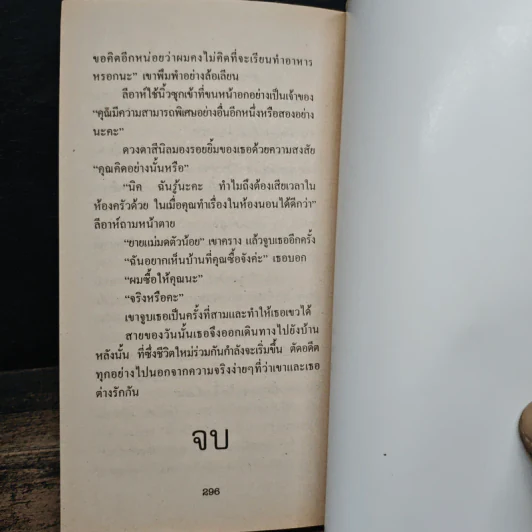 ขอคิดอีกหน่อยว่าผมคงไม่คิดที่จะเรียนทำอาหาร
หรอกนะ” เขาพึมพำอย่างล้อเลียน
ลีอาห์ใช้นิ้วซุกเข้าที่ขนหน้าอกอย่างเป็นเจ้าของ
“คุณมีความสามารถพิเศษอย่างอื่นอีกหนึ่งหรือสองอย่าง
นะคะ”
ดวงตาสีนิลมองรอยยิ้มของเธอด้วยความสงสัย
“คุณคิดอย่างนั้นหรือ”
“นิค ฉันรู้นะคะ ทำไมถึงต้องเสียเวลาใน
ห้องครัวด้วย ในเมื่อคุณทำเรื่องในห้องนอนได้ดีกว่า”
ลีอาห์ถามหน้าตาย
“ยายแม่มดตัวน้อย” เขาคราง แล้วจูบเธออีกครั้ง
“ฉันอยากเห็นบ้านที่คุณซื้อจังค่ะ” เธอบอก
“ผมซื้อให้คุณนะ”
“จริงหรือคะ”
เขาจูบเธอเป็นครั้งที่สามและทำให้เธอเขวได้
สายของวันนั้นเธอจึงออกเดินทางไปยังบ้าน
หลังนั้น ที่ซึ่งชีวิตใหม่ร่วมกันกำลังจะเริ่มขึ้น ตัดอดีต
ทุกอย่างไปนอกจากความจริงง่ายๆที่ว่าเขาและเธอ
ต่างรักกัน
จบ
296